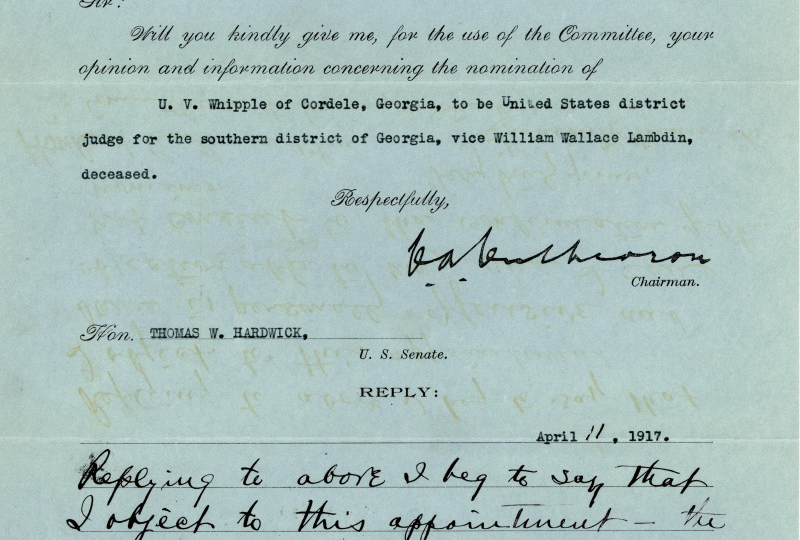 Sir:
Will you kindly give me, for the use of the Committee, your
opinion and information concerning the nomination of
U. V. Whipple of Cordele, Georgia, to be United States district
judge for the southern district of Georgia, vice William Wallace Lambdin,
deceased.
Respectfully,
C A Culberson
Chairman.
Hon. THOMAS W. HARDWICK,
U. S. Senate.
REPLY:
April 11, 1917.
Replying to above I beg to say that
I object to this appointment – the